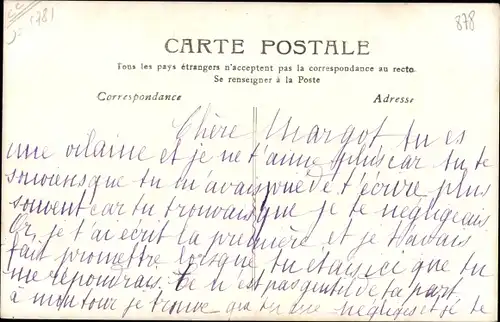 1781
878
CARTE POSTALE
Tous les pays étrangers n'acceptent pas la correspondance au recto.
Se renseigner à la Poste
Correspondance
Adresse
Chère Margot tu es
une vilaine et je ne t'aime plus car tu te
souviens que tu m'avais de t'écrire plus
souvent car tu trouvais que je te négligeais
Or, je t'ai écrit la première et je t'avais
fait promettre lorsque tu étais ici que tu
me répondrais. Ce n'est pas gentil de ta part
à mon tour je trouve que tu me négliges et je te